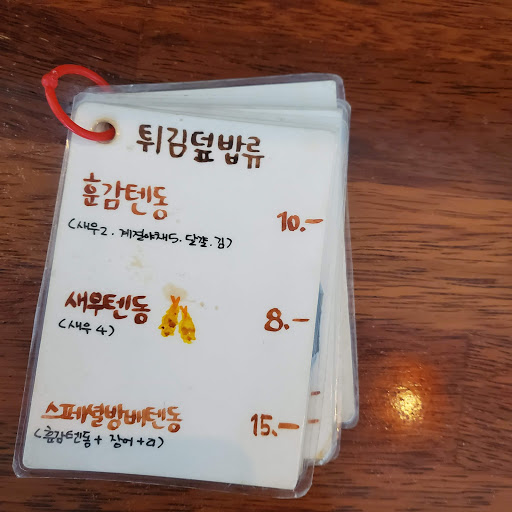 튀김덮밥류
훈감텐동
10.-
(새우2. 계절야채5. 달걀. 김)
새우텐동
8.-
(새우 4)
스페셜방배텐동
15.-
(훈감텐동 + 장어 + α)